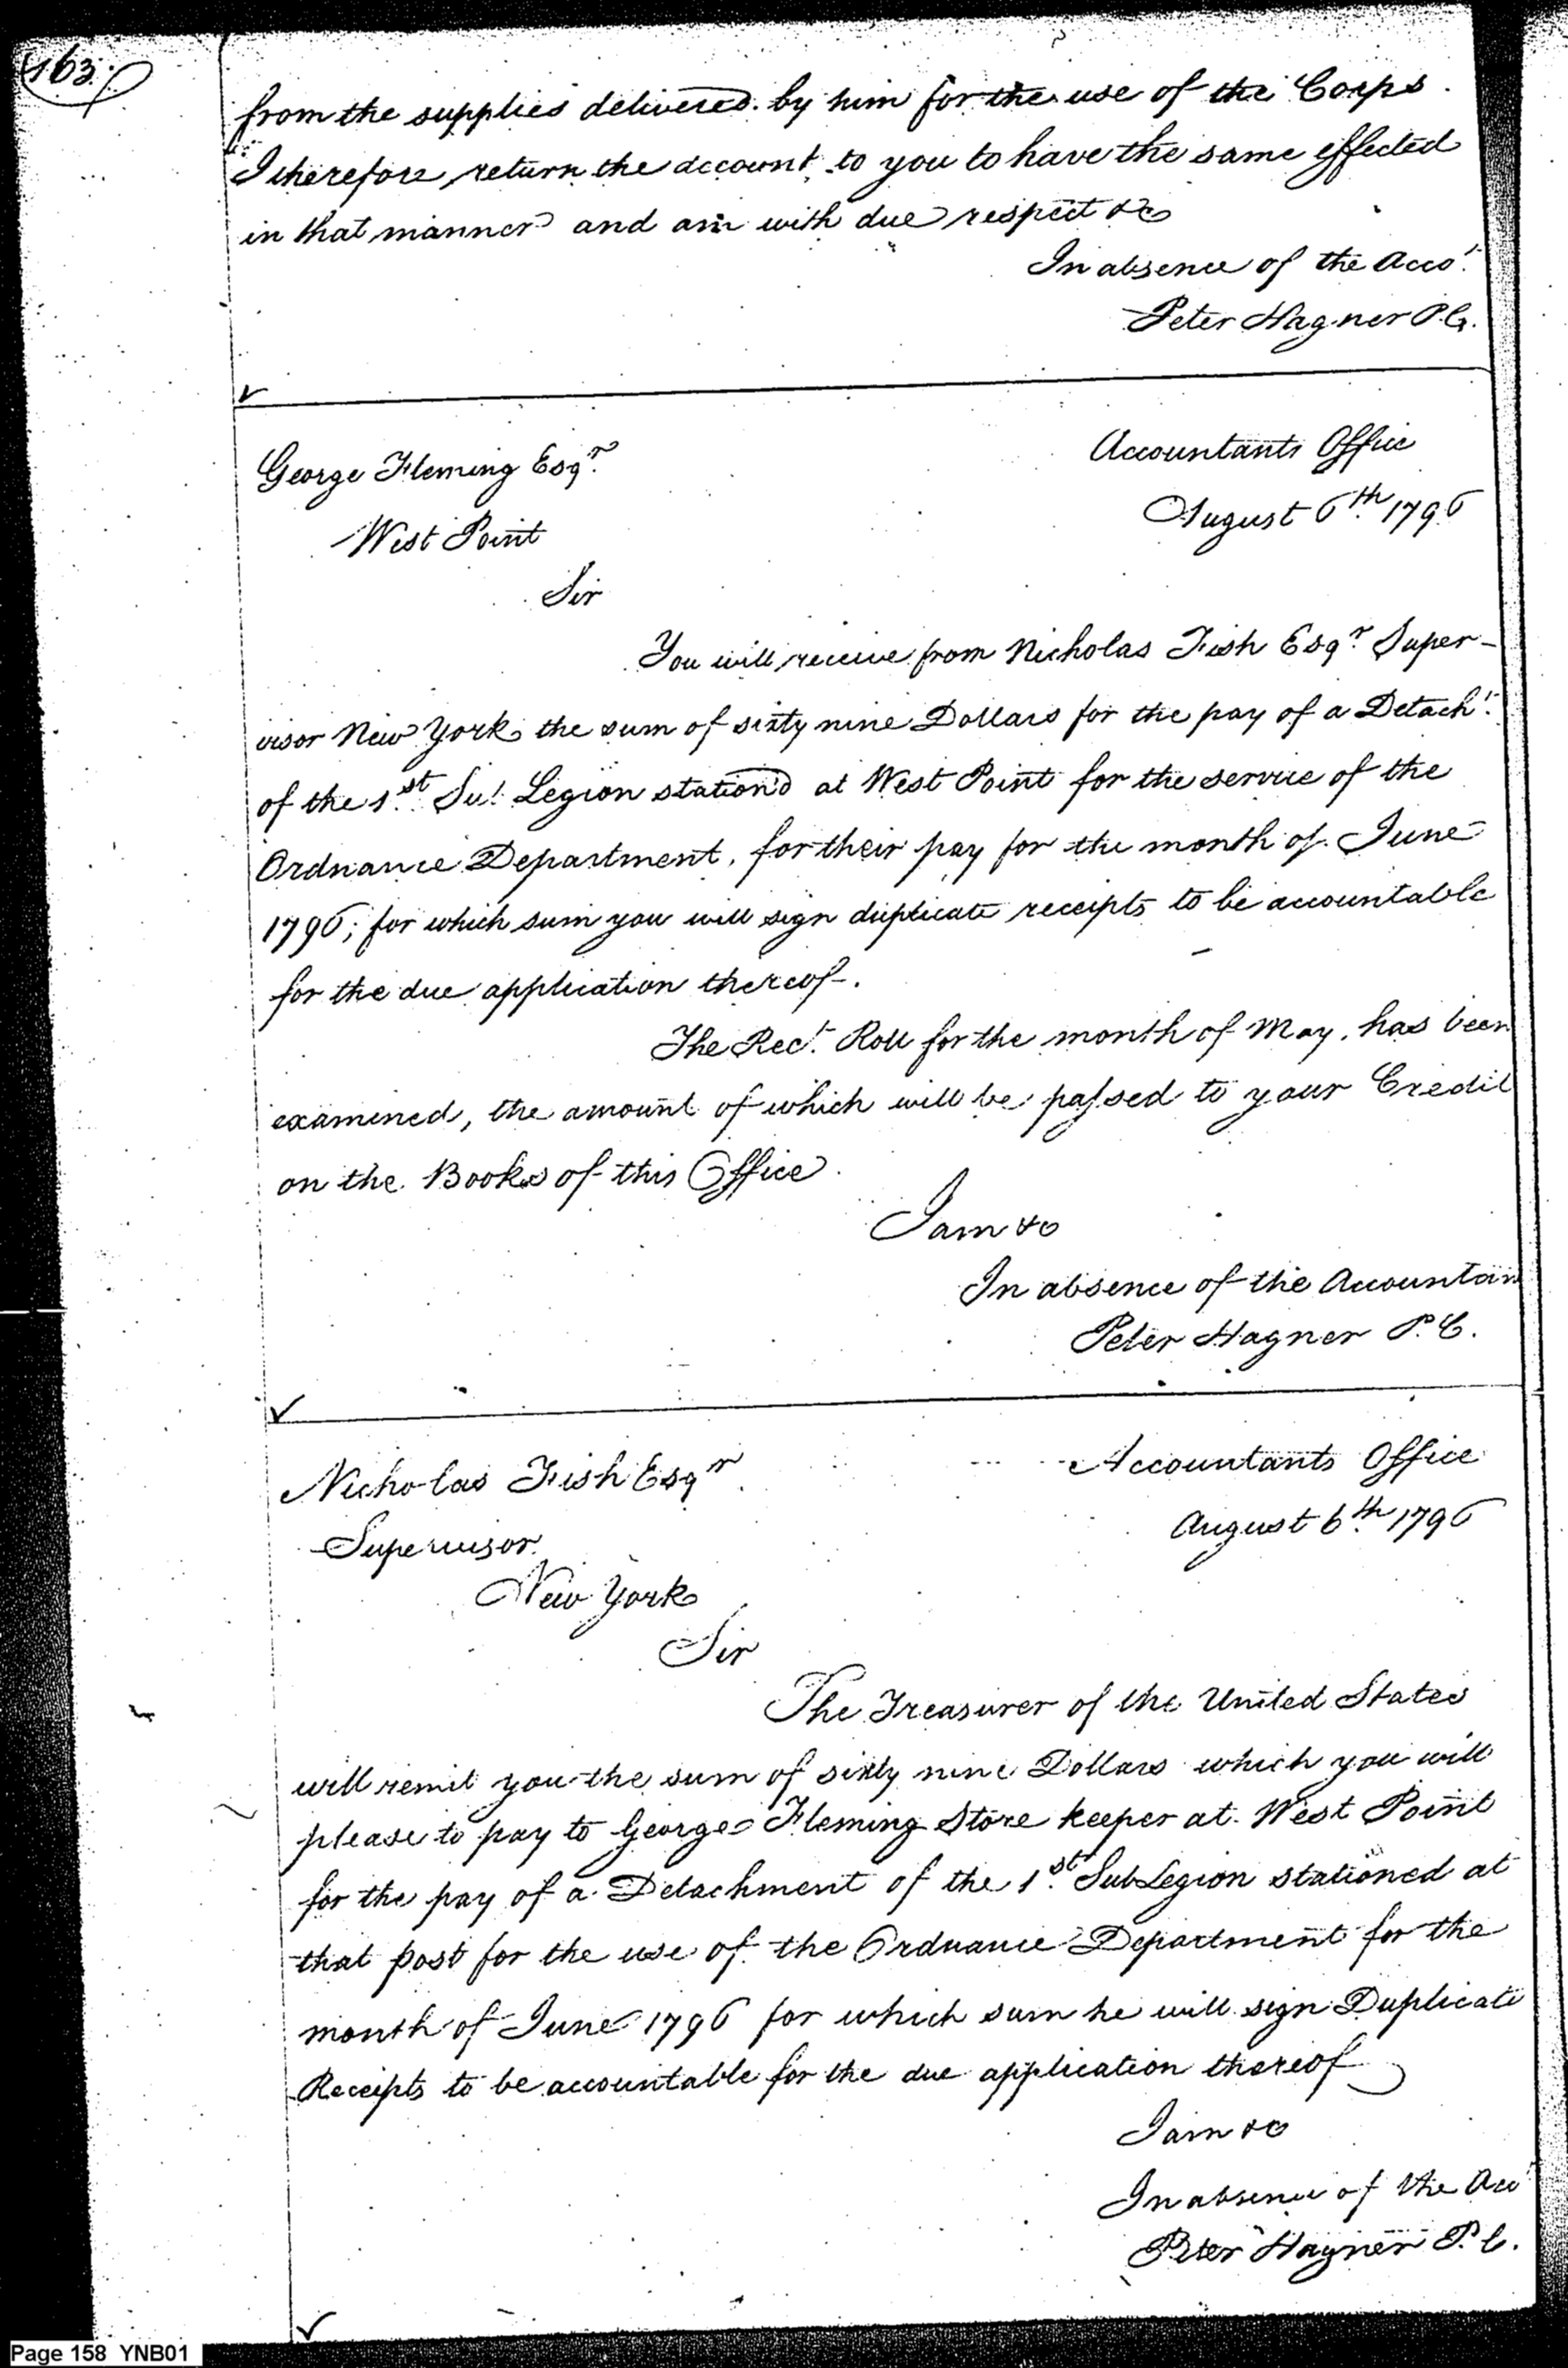 163.
from the supplies delivered by him for the use of the Corps.
I therefore return the account to you to have the same effected
in that manner and am with due respect &c
In absence of the Acco.t
Peter Hagner P.C.
George Fleming Esq.r
Accountants Office
West Point
August 6th 1796
Sir
You will receive from Nicholas Fish Esq.r Super-
visor New York the sum of sixty nine Dollars for the pay of a Detach.t
of the 1.st Su.b Legion station'd at West Point for the service of the
Ordnance Department, for their pay for the month of June
1796; for which sum you will sign duplicate receipts to be accountable
for the due application thereof.
The Rec.t Roll for the month of May, has been
examined, the amount of which will be passed to your Credit
on the Books of this Office
I am &c
In absence of the Accountan
Peter Hagner P.C.
Nicholas Fish Esq.r
Accountants Office
Supervisor
August 6.th 1796
New York
Sir
The Treasurer of the United States
will remit you the sum of sixty nine Dollars which you will
please to pay to George Fleming Store keeper at West Point
for the pay of a Detachment of the 1.st Sub Legion stationed at
that post for the use of the Ordnance Department for the
month of June 1796 for which sum he will sign Duplicate
Receipts to be accountable for the due application thereof
I am &c
In absence of the Acco.t
Peter Hagner P.C.
Page 158 YNB01